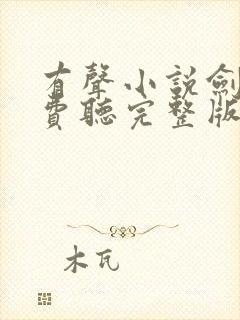 有聲小說劍
費聽完整版
木瓦